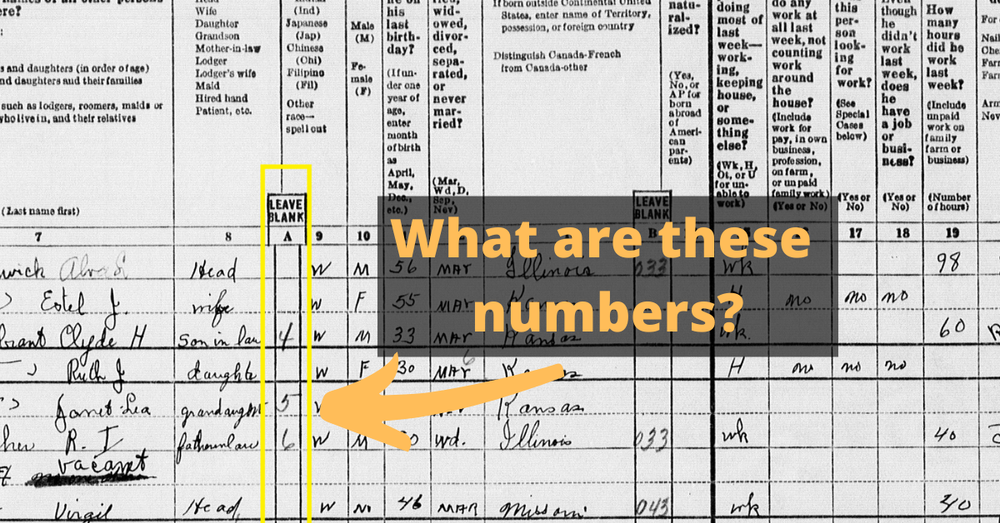 here?
Head
Wife
Daughter
Grandson
Mother-in-law
Lodger
Lodger's wife
Maid
Hired hand
Patient, etc.
s and daughters (in order of age)
nd daughters and their families
such as lodgers, roomers, maids or
who live in, and their relatives
(Last name first)
(Ind)
Japanese
(Jap)
Chinese
(Chi)
Filipino
(Fil)
Other
race—
spell out
Male
(M)
Fe-
male
(F)
his
last
birth-
day?
(If un-
der one
year of
age,
enter
month
of birth
as
April,
May,
Dec.,
etc.)
wid-
owed,
divor-
ced,
sepa-
rated,
or
never
mar-
ried?
(Mar,
Wd, D,
Sep,
Nev)
If born outside Continental United
States, enter name of Territory,
possession, or foreign country
Distinguish Canada-French
from Canada-other
natu-
ral-
ized?
(Yes,
No, or
AP for
born
abroad
of
Ameri-
can
par-
ents)
doing
most of
last
week—
work-
ing,
keeping
house,
or
some-
thing
else?
(Wk, H,
Ot, or U
for un-
able to
work)
do any
work at
all last
week, not
counting
work
around
the
house?
(Include
work for
pay, in own
business,
profession,
on farm,
or unpaid
family work)
(Yes or No)
this
per-
son
look-
ing
for
work?
(See
Special
Cases
below)
(Yes or
No)
though
he
didn't
work
last
week,
does
he
have
a job
or
busi-
ness?
(Yes or
No)
How
many
hours
did he
work
last
week?
(Include
unpaid
work on
family
farm or
business)
(Number
of hours)
LEAVE
BLANK
LEAVE
BLANK
7 8 A 9 10 B 17 18 19
What are these
numbers?
wick Head W M 56 MAR Illinois 033 wk 98
Estel J. wife W F 55 MAR no no no
Clyde H Son in law 4 W M 33 MAR Kansas 60
Ruth J daughte F 30 MAR H no no no
Janet Lea grandaught 5 Kansas
R. I fatherinlaw 6 W M wd. Illinois 033 wk 40
vacant
Virgil Head W 46 MAR Missouri 043 wk 40